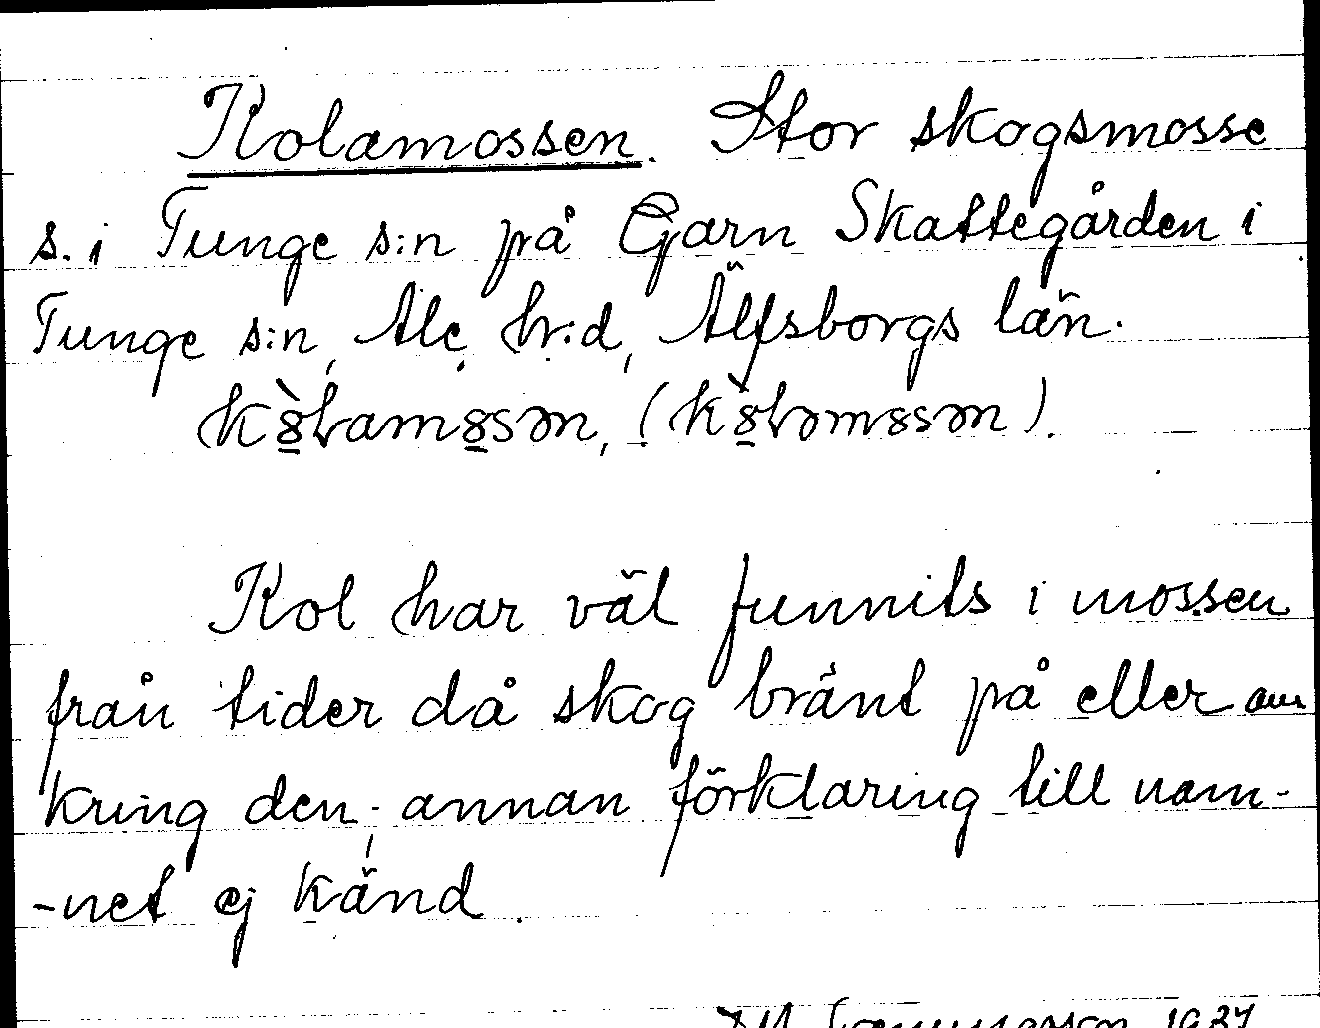 Kolamossen. Stor skogsmosse
s. i Tunge s:n på Gjarn Skattegården i
Tunge s:n, Ale h:d, Älfsborgs län.
Kol har väl funnits i mossen
från tider då skog bränt på eller om
kring den; annan förklaring till nam-
-net ej känd.
1934